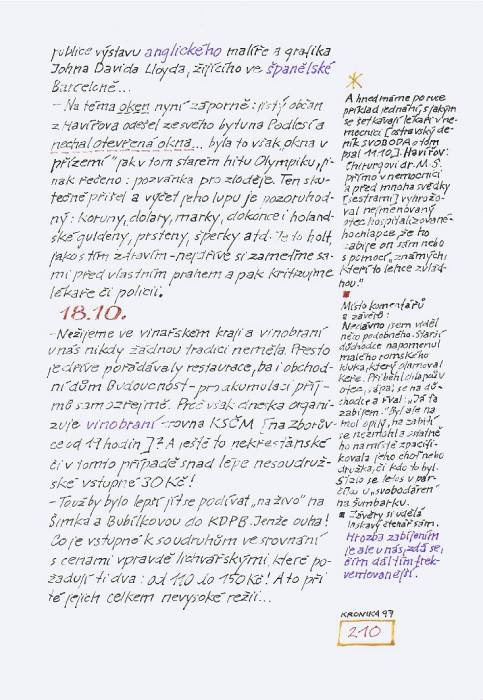 publice výstavu anglického malíře a grafika
Johna Davida Lloyda, žijícího ve španělské
Barceloně...
- Na téma oken nyní záporně: jistý občan
z Havířova odešel ze svého bytu na Podlesí a
nechal otevřená okna... byla to však okna v
přízemí "jak v tom starém hitu Olympiku, ji-
nak řečeno: pozvánka pro zloděje. Ten sku-
tečně přišel a výčet jeho lupu je pozoruhod-
ný: koruny, dolary, marky, dokonce i holand-
ské guldeny, prsteny, šperky atd. Je to holt,
jako s tím zdravím - nejdříve si zameťme sa-
mi před vlastním prahem a pak kritizujme
lékaře či policii.
18.10.
- Nežijeme ve vinařském kraji a vinobraní
u nás nikdy žádnou tradici nemělo. Přesto
je dříve pořádávaly restaurace, ba i obchod-
ní dům Budoucnost - pro akumulaci příj-
mů samozřejmě. Proč však dneska organi-
zuje vinobraní zrovna KSČM [na Zborův-
ce od 17 hodin]? A ještě to nekřesťanské
či v tomto případě snad lépe nesoudruž-
ské vstupné 30 Kč!
- To už by bylo lepší jít se podívat "na živo" na
Šimka a Bubílkovou do KDPB. Jenže ouha!
Co je vstupné k soudruhům ve srovnání
s cenami vpravdě lichvářskými, které po-
žadují ti dva: od 110 do 150 Kč! A to při
té jejich celkem nevysoké režii...
A hned máme po ruce
příklad jednání, s jakým
se setkávají lékaři v ne-
mocnici [ostravský de-
ník SVOBODA o tom
psal 11.10.]. Havířov:
Chirurgovi dr. M.S.
přímo v nemocnici
a před mnoha svědky
[sestrami] vyhrožo-
val nejmenovaný
otec hospitalizované-
ho chlapce, že ho
zabije on sám nebo
s pomocí "známých
kteří to lehce zvlád-
nou."
Místo komentářů
a závěrů:
Nedávno jsem viděl
něco podobného. Starší
důchodce napomenul
malého romského
kluka, který olamoval
keře. Přiběhl chlapův
otec, sápal se na dů-
chodce a řval: "Já ťa
zabijem." Byl ale na-
mol opilý, na zabití
se nezmohl a ostatně
ho na místě zpacifi-
kovala jeho choť nebo
družka, či kdo to byl.
Stalo se letos v pár-
číku u "svobodáren"
na Šumbarku.
Závěry si udělá
laskavý čtenář sám.
Hrozba zabijením
je ale u nás, zdá se,
čím dál tím frek-
ventovanější.
KRONIKA 97
210